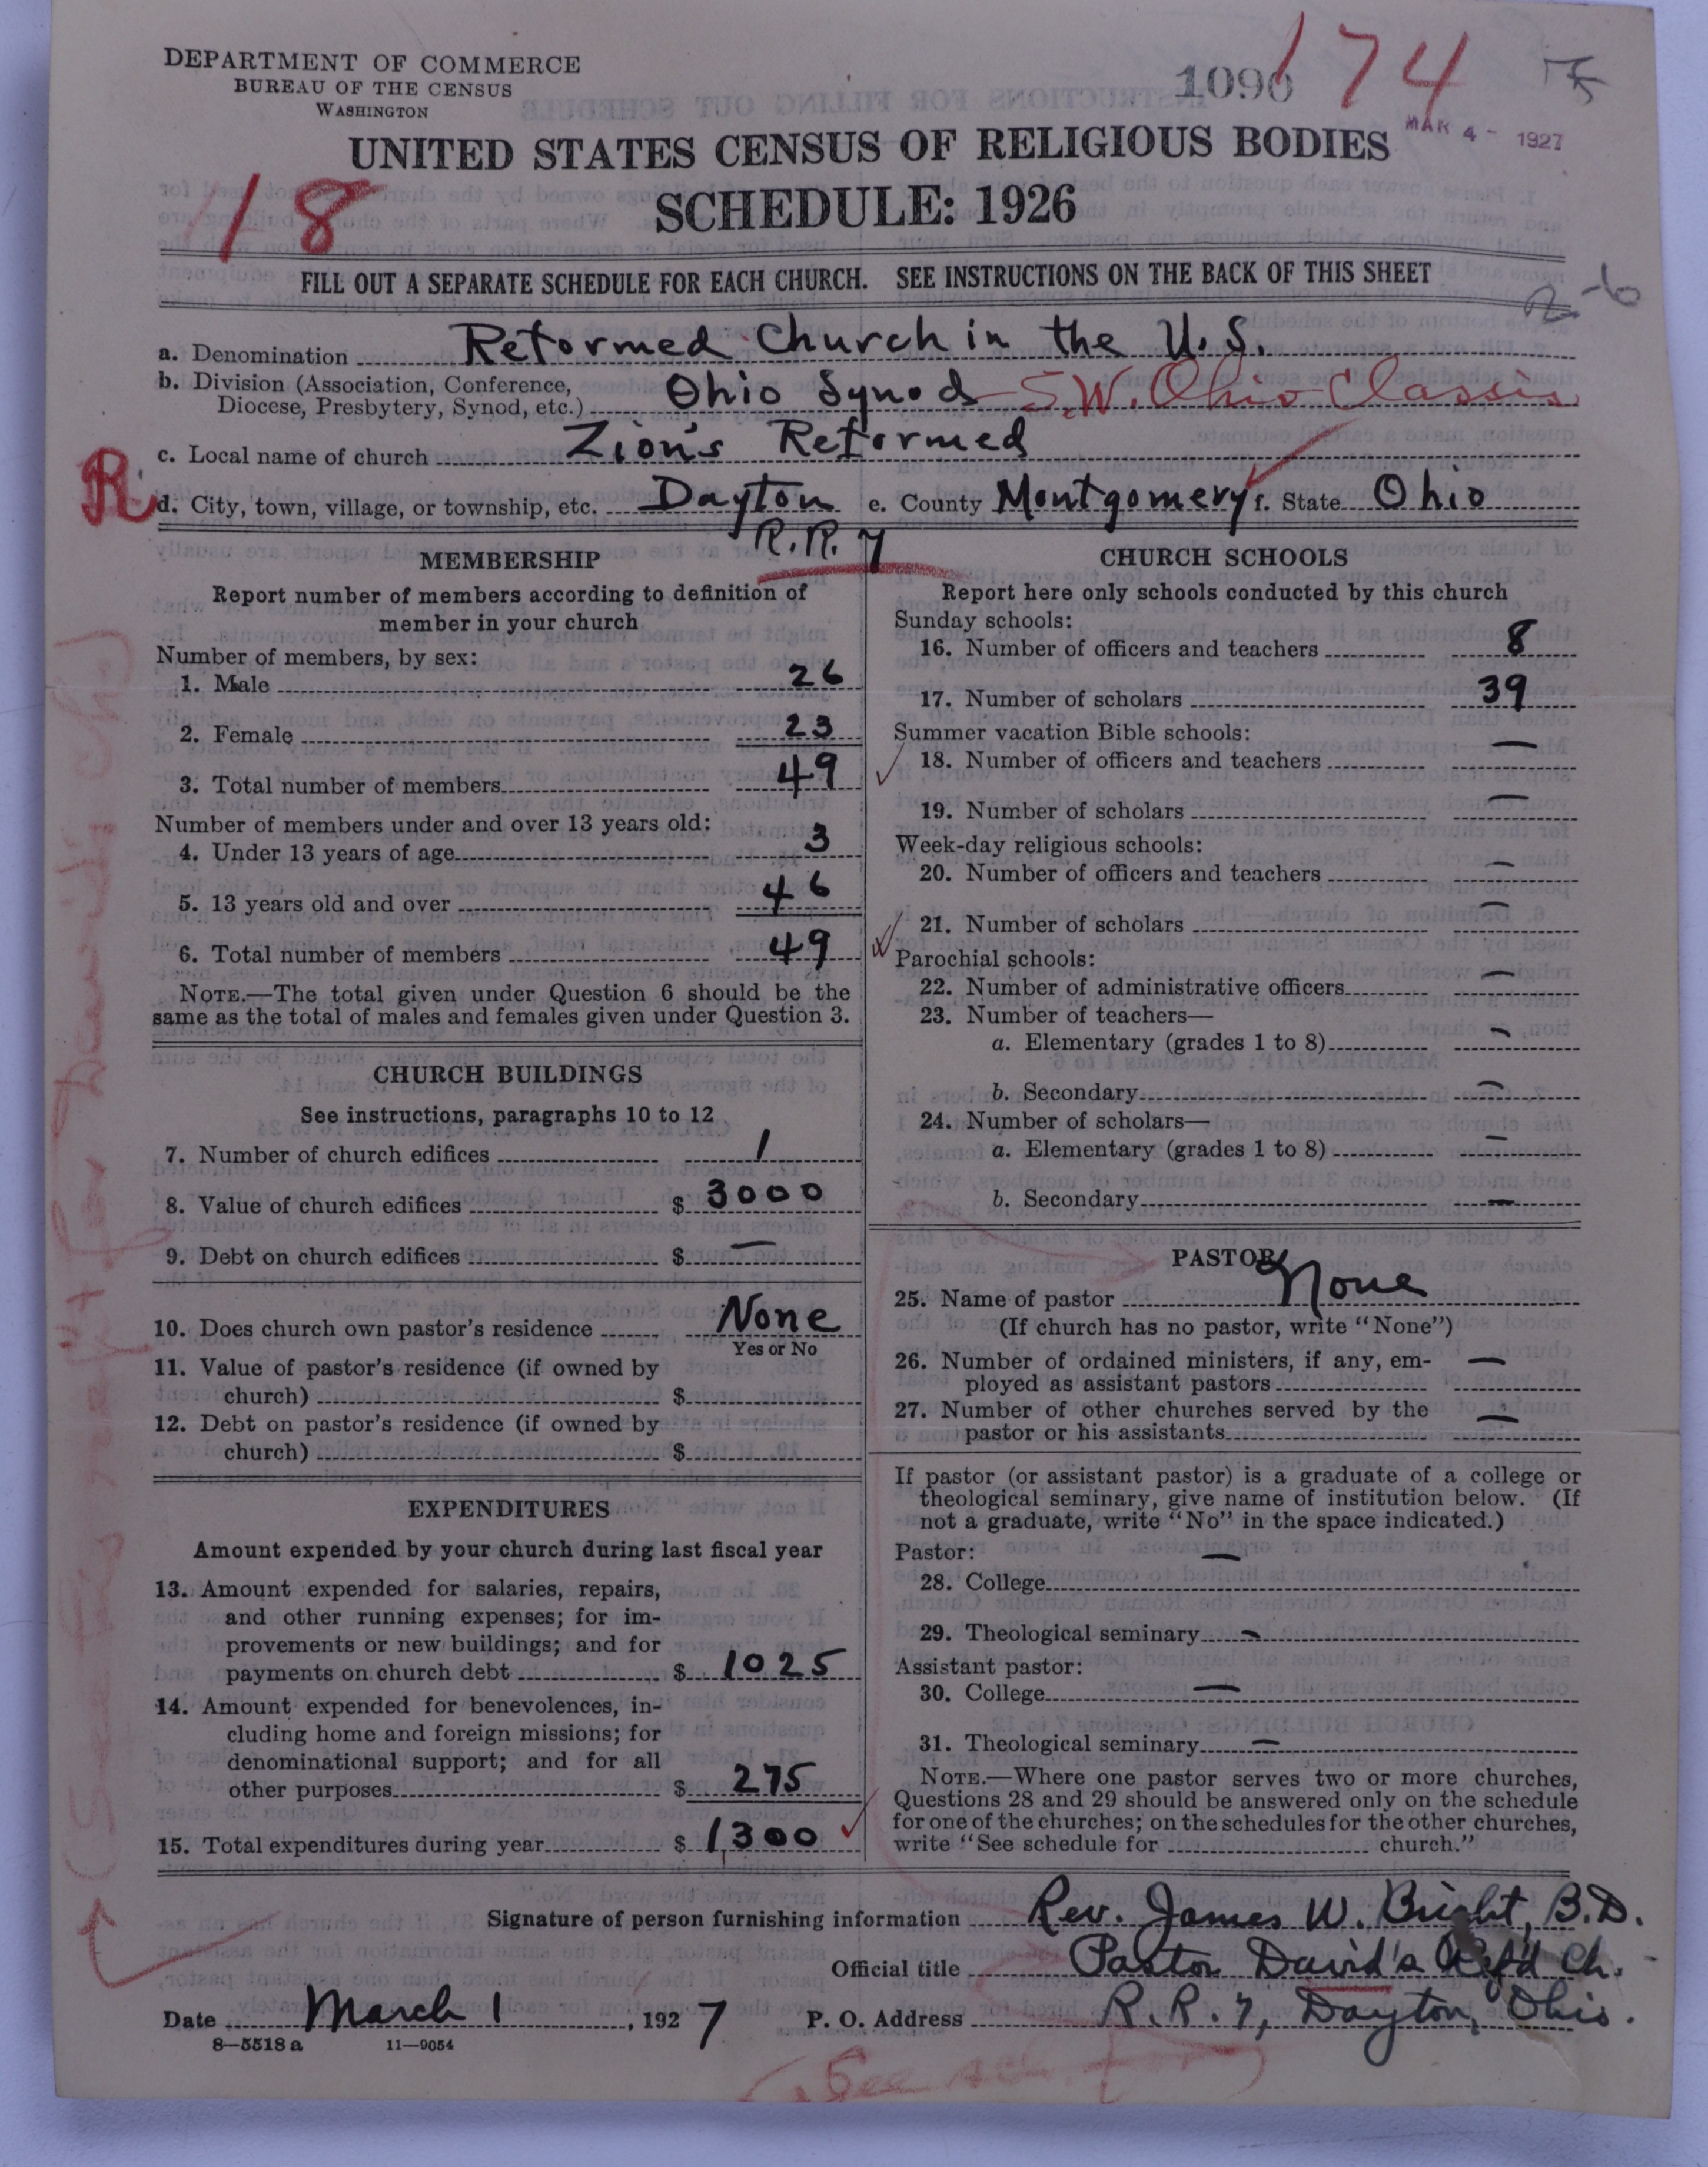 DEPARTMENT OF COMMERCE
BUREAU OF THE CENSUS
WASHINGTON
1090
174
MAR 4 - 1927
UNITED STATES CENSUS OF RELIGIOUS BODIES
SCHEDULE: 1926
18
FILL OUT A SEPARATE SCHEDULE FOR EACH CHURCH. SEE INSTRUCTIONS ON THE BACK OF THIS SHEET
a. Denomination Reformed Church in the U.S.
b. Division (Association, Conference, Diocese, Presbytery, Synod, etc.) Ohio Synod - S.W. Ohio Classis
c. Local name of church Zion's Reformed
R
d. City, town, village, or township, etc. Dayton e. County Montgomery f. State Ohio
R.R. 7
MEMBERSHIP
Report number of members according to definition of
member in your church
Number of members, by sex:
1. Male 26
2. Female 23
3. Total number of members 49
Number of members under and over 13 years old:
4. Under 13 years of age 3
5. 13 years old and over 46
6. Total number of members 49
NOTE.—The total given under Question 6 should be the
same as the total of males and females given under Question 3.
CHURCH BUILDINGS
See instructions, paragraphs 10 to 12
7. Number of church edifices 1
8. Value of church edifices $ 3000
9. Debt on church edifices $ —
10. Does church own pastor's residence None
Yes or No
11. Value of pastor's residence (if owned by
church) $
12. Debt on pastor's residence (if owned by
church) $
EXPENDITURES
Amount expended by your church during last fiscal year
13. Amount expended for salaries, repairs,
and other running expenses; for im-
provements or new buildings; and for
payments on church debt $ 1025
14. Amount expended for benevolences, in-
cluding home and foreign missions; for
denominational support; and for all
other purposes $ 275
15. Total expenditures during year $ 1,300
CHURCH SCHOOLS
Report here only schools conducted by this church
Sunday schools:
16. Number of officers and teachers 8
17. Number of scholars 39
Summer vacation Bible schools:
18. Number of officers and teachers —
19. Number of scholars —
Week-day religious schools:
20. Number of officers and teachers —
21. Number of scholars —
Parochial schools:
22. Number of administrative officers —
23. Number of teachers—
a. Elementary (grades 1 to 8) —
b. Secondary —
24. Number of scholars—
a. Elementary (grades 1 to 8) —
b. Secondary —
PASTOR
25. Name of pastor None
(If church has no pastor, write "None")
26. Number of ordained ministers, if any, em-
ployed as assistant pastors —
27. Number of other churches served by the
pastor or his assistants —
If pastor (or assistant pastor) is a graduate of a college or
theological seminary, give name of institution below. (If
not a graduate, write "No" in the space indicated.)
Pastor:
28. College —
29. Theological seminary —
Assistant pastor:
30. College —
31. Theological seminary —
NOTE.—Where one pastor serves two or more churches,
Questions 28 and 29 should be answered only on the schedule
for one of the churches; on the schedules for the other churches,
write "See schedule for church."
Signature of person furnishing information Rev. James W. Bright, B.D.
Official title Pastor David's Ref'd Ch.
Date March 1, 1927 P. O. Address R.R. 7, Dayton, Ohio.
8—5518 a 11—9054
(See sch. for)